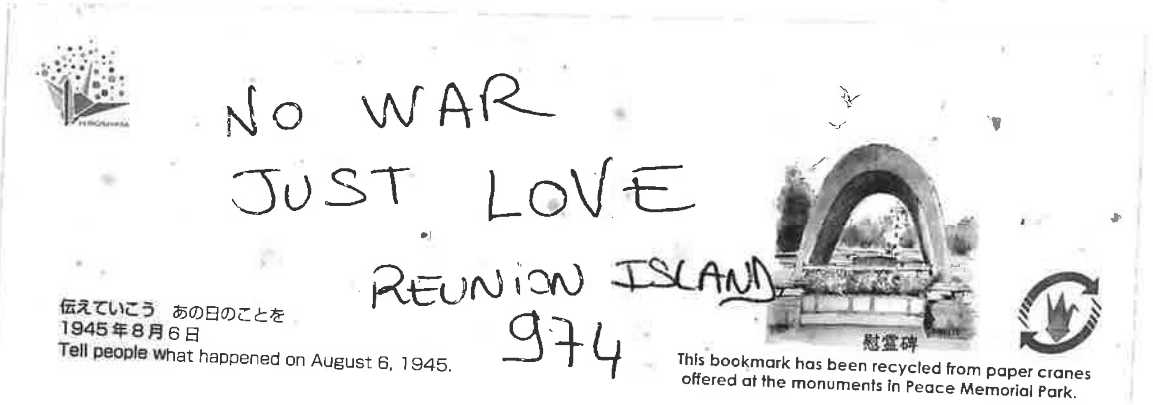 HIROSHIMA
NO WAR
JUST LOVE
REUNION ISLAND
974
伝えていこう あの日のことを
1945年8月6日
Tell people what happened on August 6, 1945.
慰霊碑
This bookmark has been recycled from paper cranes
offered at the monuments in Peace Memorial Park.